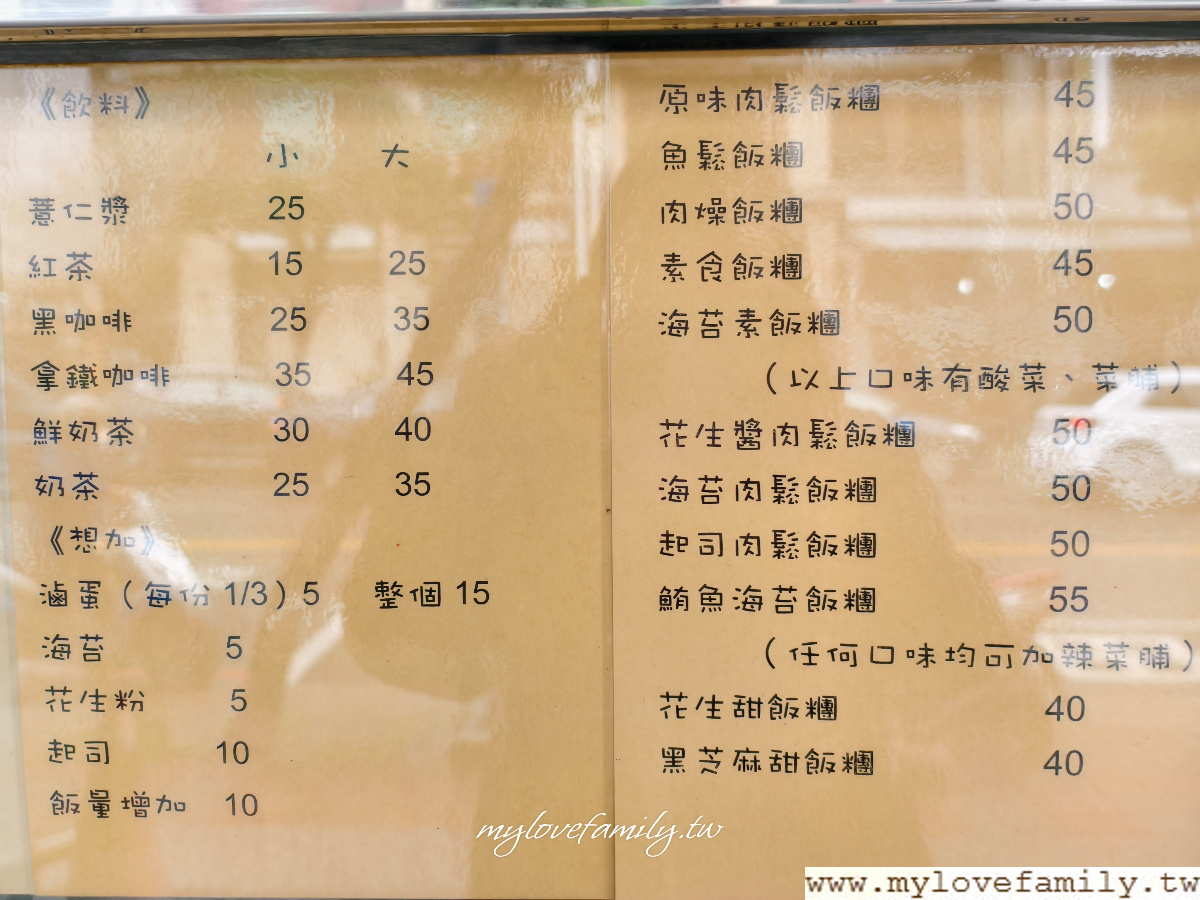 《飲料》
小 大
薏仁漿 25
紅茶 15 25
黑咖啡 25 35
拿鐵咖啡 35 45
鮮奶茶 30 40
奶茶 25 35
《想加》
滷蛋（每份 1/3）5 整個 15
海苔 5
花生粉 5
起司 10
飯量增加 10
原味肉鬆飯糰 45
魚鬆飯糰 45
肉燥飯糰 50
素食飯糰 45
海苔素飯糰 50
（以上口味有酸菜、菜脯）
花生醬肉鬆飯糰 50
海苔肉鬆飯糰 50
起司肉鬆飯糰 50
鮪魚海苔飯糰 55
（任何口味均可加辣菜脯）
花生甜飯糰 40
黑芝麻甜飯糰 40
mylovefamily.tw
www.mylovefamily.tw